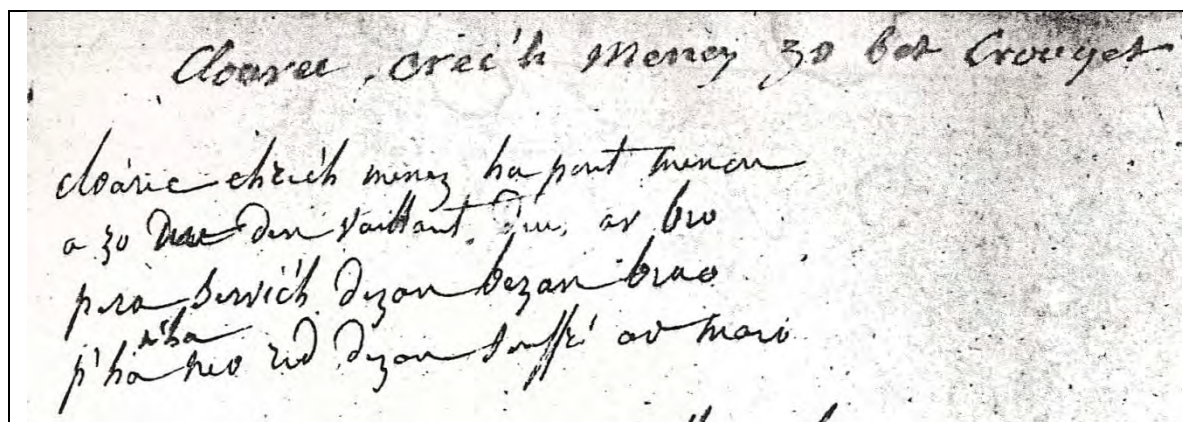 Cloarec, crec'h Menez zo bet Crouget
cloàrec chrec'h menez ha pont menou
a zo den vaillant, d'eu, ar bro
pera servich dezan bezan brao
p'ha n'ha reo red dezan souffri ar maro